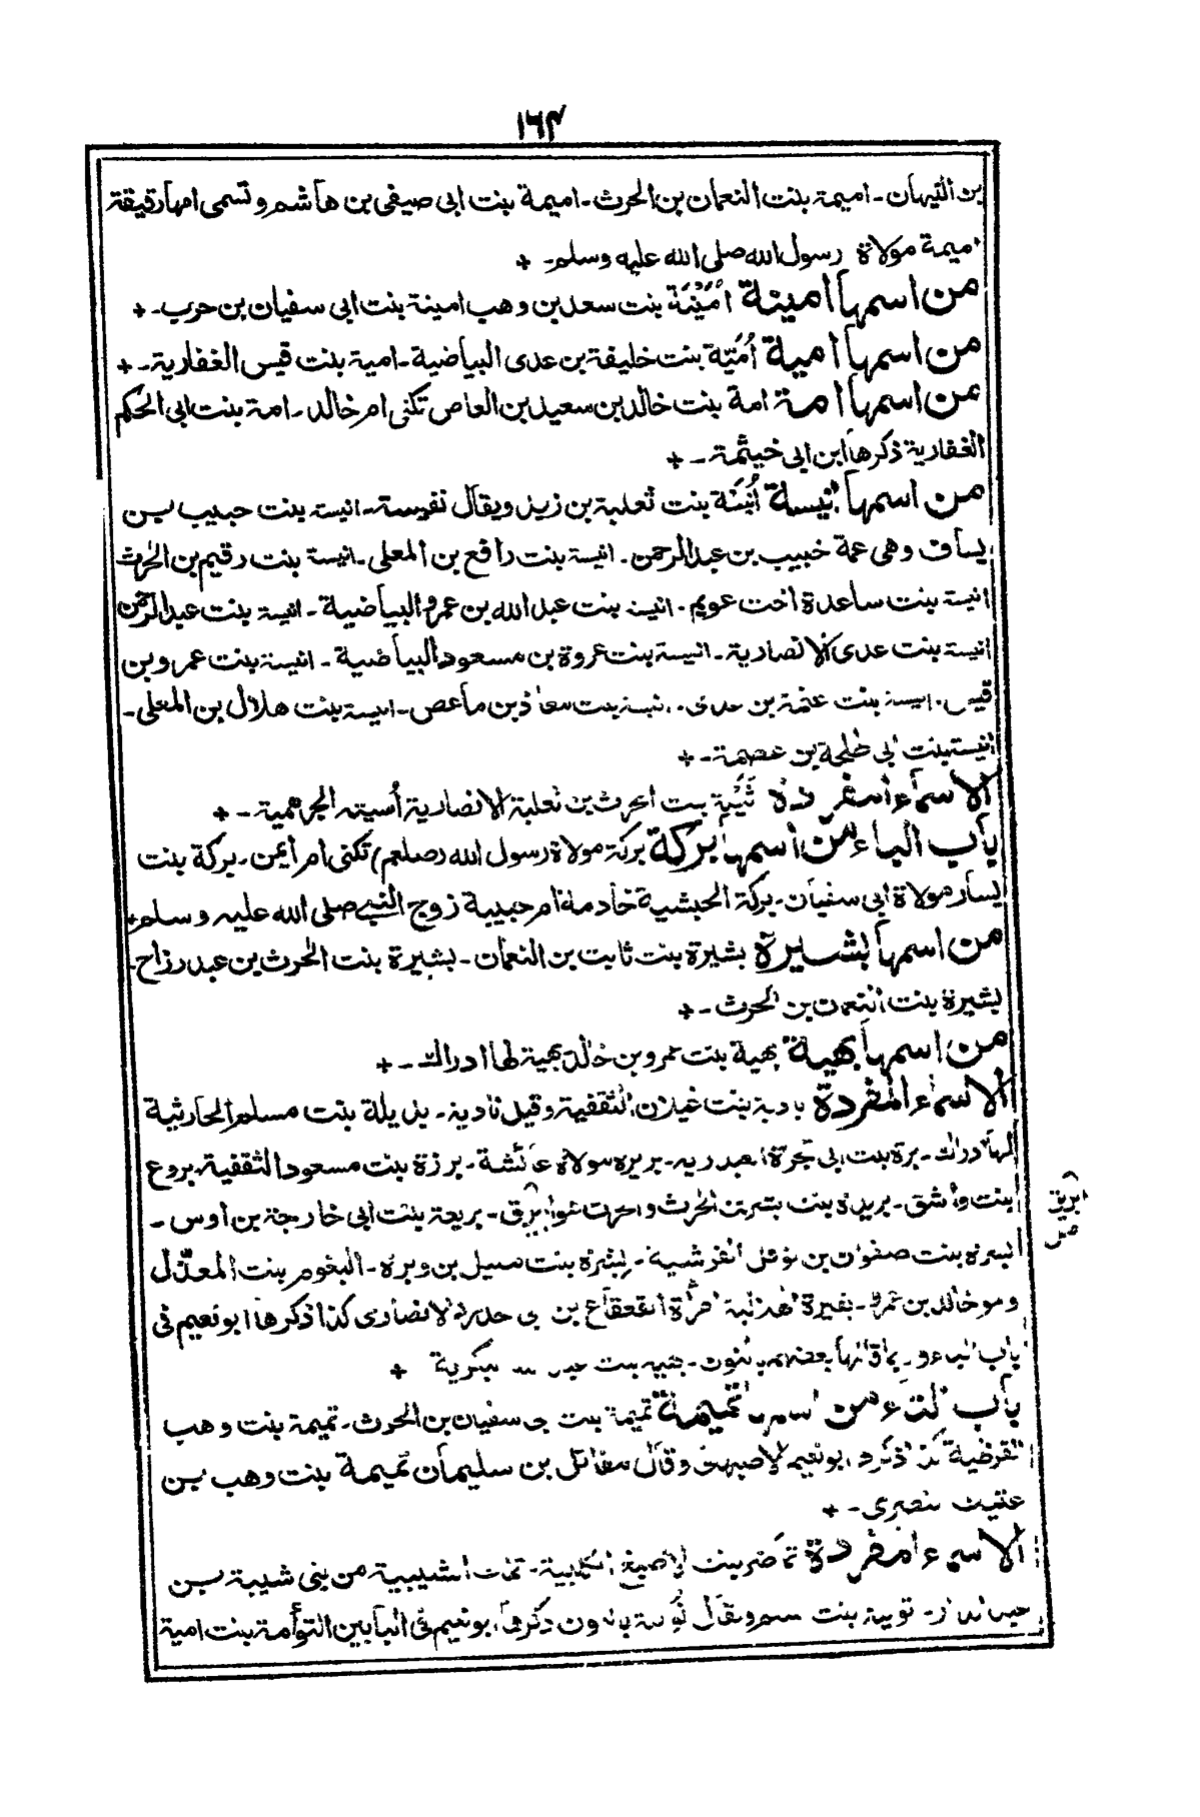 ١٦٣
بن التيهان ـ اميمة بنت النعمان بن الحرث ـ اميمة بنت ابى صيفى بن هاشم وتسمى امها رقيقة
اميمة مولاة رسول الله صلى الله عليه وسلم ـ +
من اسمها امينة اُمَيْنَة بنت سعد بن وهب امينة بنت ابى سفيان بن حرب ـ +
من اسمها امية اُمَيّة بنت خليفة بن عدى البياضية ـ امية بنت قيس الغفارية ـ +
من اسمها امة امة بنت خالد بن سعيد بن العاص تكنى ام خالد ـ امة بنت ابى الحكم
الغفارية ذكرها ابن ابى خيثمة ـ +
من اسمها انيسة اُنيسَة بنت ثعلبة بن زيد ويقال نفيسة ـ انيسة بنت حبيب بن
يساف وهى عمة خبيب بن عبد الرحمن ـ انيسة بنت رافع بن المعلى ـ انيسة بنت رقيم بن الحرث
انيسة بنت ساعدة اخت عويم ـ انيسة بنت عبد الله بن عمرو البياضية ـ انيسة بنت عبد الرحمن
انيسة بنت عدى الانصارية ـ انيسة بنت عروة بن مسعود البياضية ـ انيسة بنت عمرو بن
قيس ـ انيسة بنت عنمة بن عدى ـ انيسة بنت معاذ بن ماعص ـ انيسة بنت هلال بن المعلى ـ
انيسة بنت ابى طلحة بن عصمة ـ +
الاسماء المفردة بنت الحرث بن ثعلبة الانصارية أسية الجرهمية ـ +
باب الباء من اسمها بركة بركة مولاة رسول الله (صلعم) تكنى ام أيمن ـ بركة بنت
يسار مولاة ابى سفيان ـ بركة الحبشية خادمة ام حبيبة زوج النبى صلى الله عليه وسلم +
من اسمها بشيرة بشيرة بنت ثابت بن النعمان ـ بشيرة بنت الحرث بن عبد رزاح ـ
بشيرة بنت النعمان بن الحرث ـ +
من اسمها بهية بهية بنت عمرو بن خالد بهية لها ادراك ـ +
الاسماء المفردة بادية بنت غيلان الثقفية وقيل نادية ـ بديلة بنت مسلم الحارثية
لها ادراك ـ برة بنت ابى تجرة العبدرية ـ بريرة مولاة عائشة ـ برزة بنت مسعود الثقفية بروع
بنت واشق ـ بريدة بنت بشر بن الحرث ـ بريعة بنت ابى خارجة بن اوس ـ
بسرة بنت صفوان بن نوفل القرشية ـ بشرة بنت مليل بن وبرة ـ البغوم بنت المعذّل
وهو خالد بن عمرو ـ بقيرة الهذلية امرأة القعقاع بن ابى حدرد الانصارى كذا ذكرها ابو نعيم فى
باب الباء و قالها بعضهم بالنون ـ بهية بنت البكرية +
باب التاء من اسمها تميمة تميمة بنت ابى سفيان بن الحرث ـ تميمة بنت وهب
القرظية كذا ذكره ابو نعيم الاصبهانى وقال مقاتل بن سليمان تميمة بنت وهب بن
عتيك النصرى ـ +
الاسماء المفردة تماضر بنت الاصبغ الكلبية ـ الشيبية من بنى شيبة بن
ـ تويبة بنت ويقال بالنون ذكرها ابو نعيم فى البابين التوأمة بنت امية